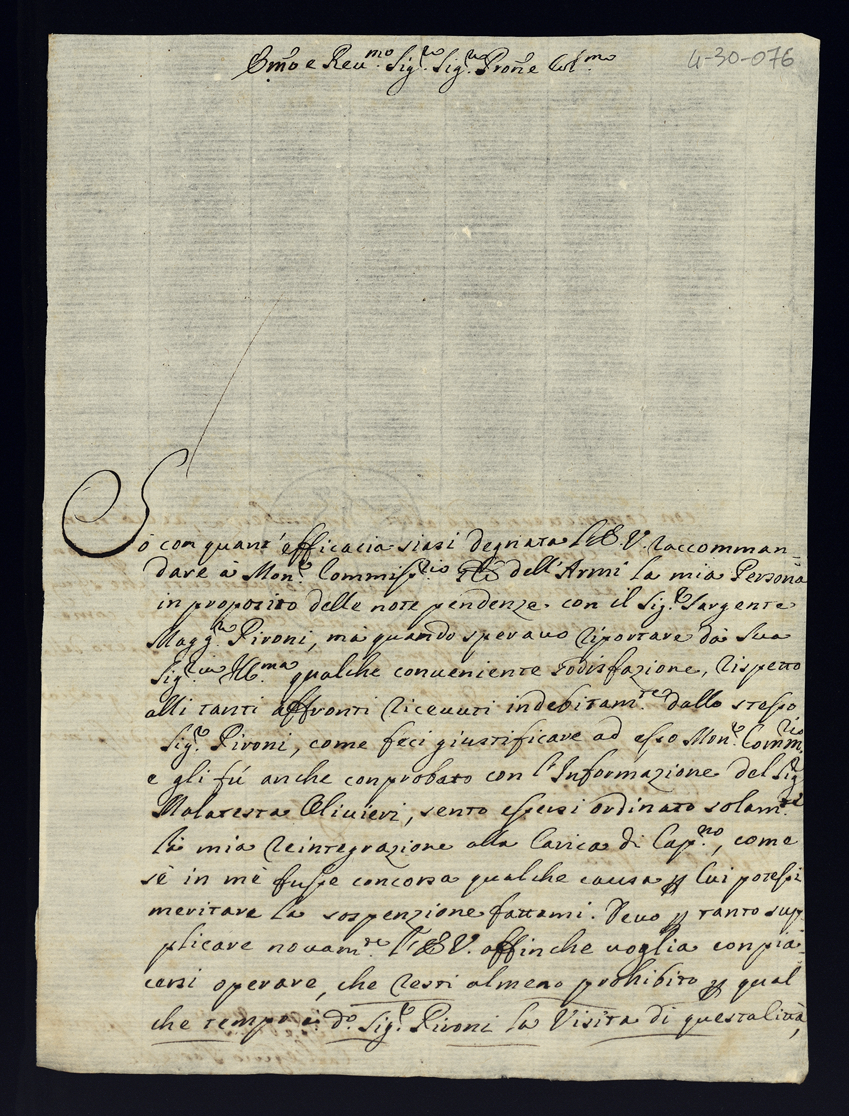 Em̃o e Reu.mo Sig.re Sig.re Proñe Col.mo
4-30-076
Sò con quant'efficacia siasi degnata l'E.V. raccomman-
dare à Mon.re Commiss.rio dell'Armi la mia Persona
in proposito delle note pendenze con il Sig.re Sargente
Magg.re Pironi, mà quando sperauo riportare dà sua
Sig.ria Ill.ma qualche conueniente sodisfazione, rispetto
alli tanti affronti riceuuti indebitam.te dallo stesso
Sig.re Pironi, come feci giustificare ad esso Mon.re Comm.rio
e gli fú anche conprobato con l'Informazione del Sig.re
Malatesta Oliuieri, sento essersi ordinato solam.te
la mia reintegrazione alla Carica di Cap.no, come
sè in me fusse concorsa qualche causa p cui potessi
meritare la sospenzione fattami. Deuo p tanto sup-
plicare nouam.te l'E.V. affinche uoglia conpia-
cersi operare, che resti almeno prohibito p qual
che tempo à d.o Sig.re Pironi la Visita di questa Città,